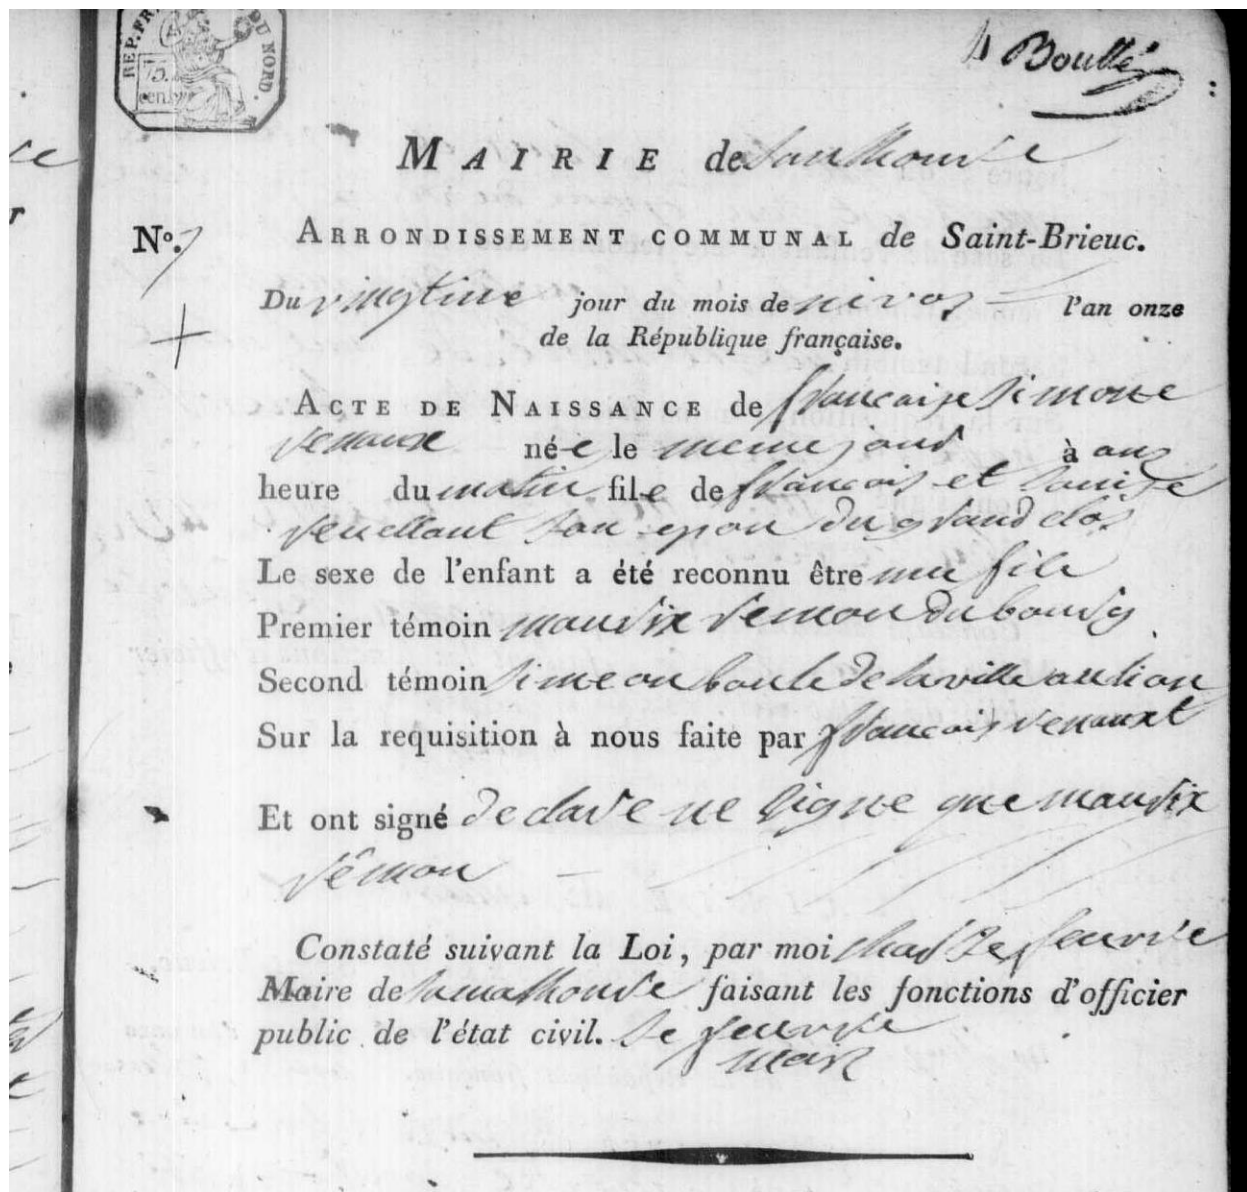 REP. FRA DU NORD.
75.
cent.
Boullé
MAIRIE de Lanmoure
No. 7
ARRONDISSEMENT COMMUNAL de Saint-Brieuc.
Du vingtine jour du mois de nivos l'an onze
de la République française.
ACTE DE NAISSANCE de francoise simone
renaux né-e le meme jour à onz
heure du matin fil-e de francois et louise
revellant son epou du grand clos
Le sexe de l'enfant a été reconnu être une file
Premier témoin maurix remon du bourg
Second témoin simeon boule de la ville
Sur la requisition à nous faite par francois renauxt
Et ont signé declare ne signe que maurix
rêmon
Constaté suivant la Loi, par moi feuvre
Maire de faisant les fonctions d'officier
public de l'état civil. le feuvre
mair